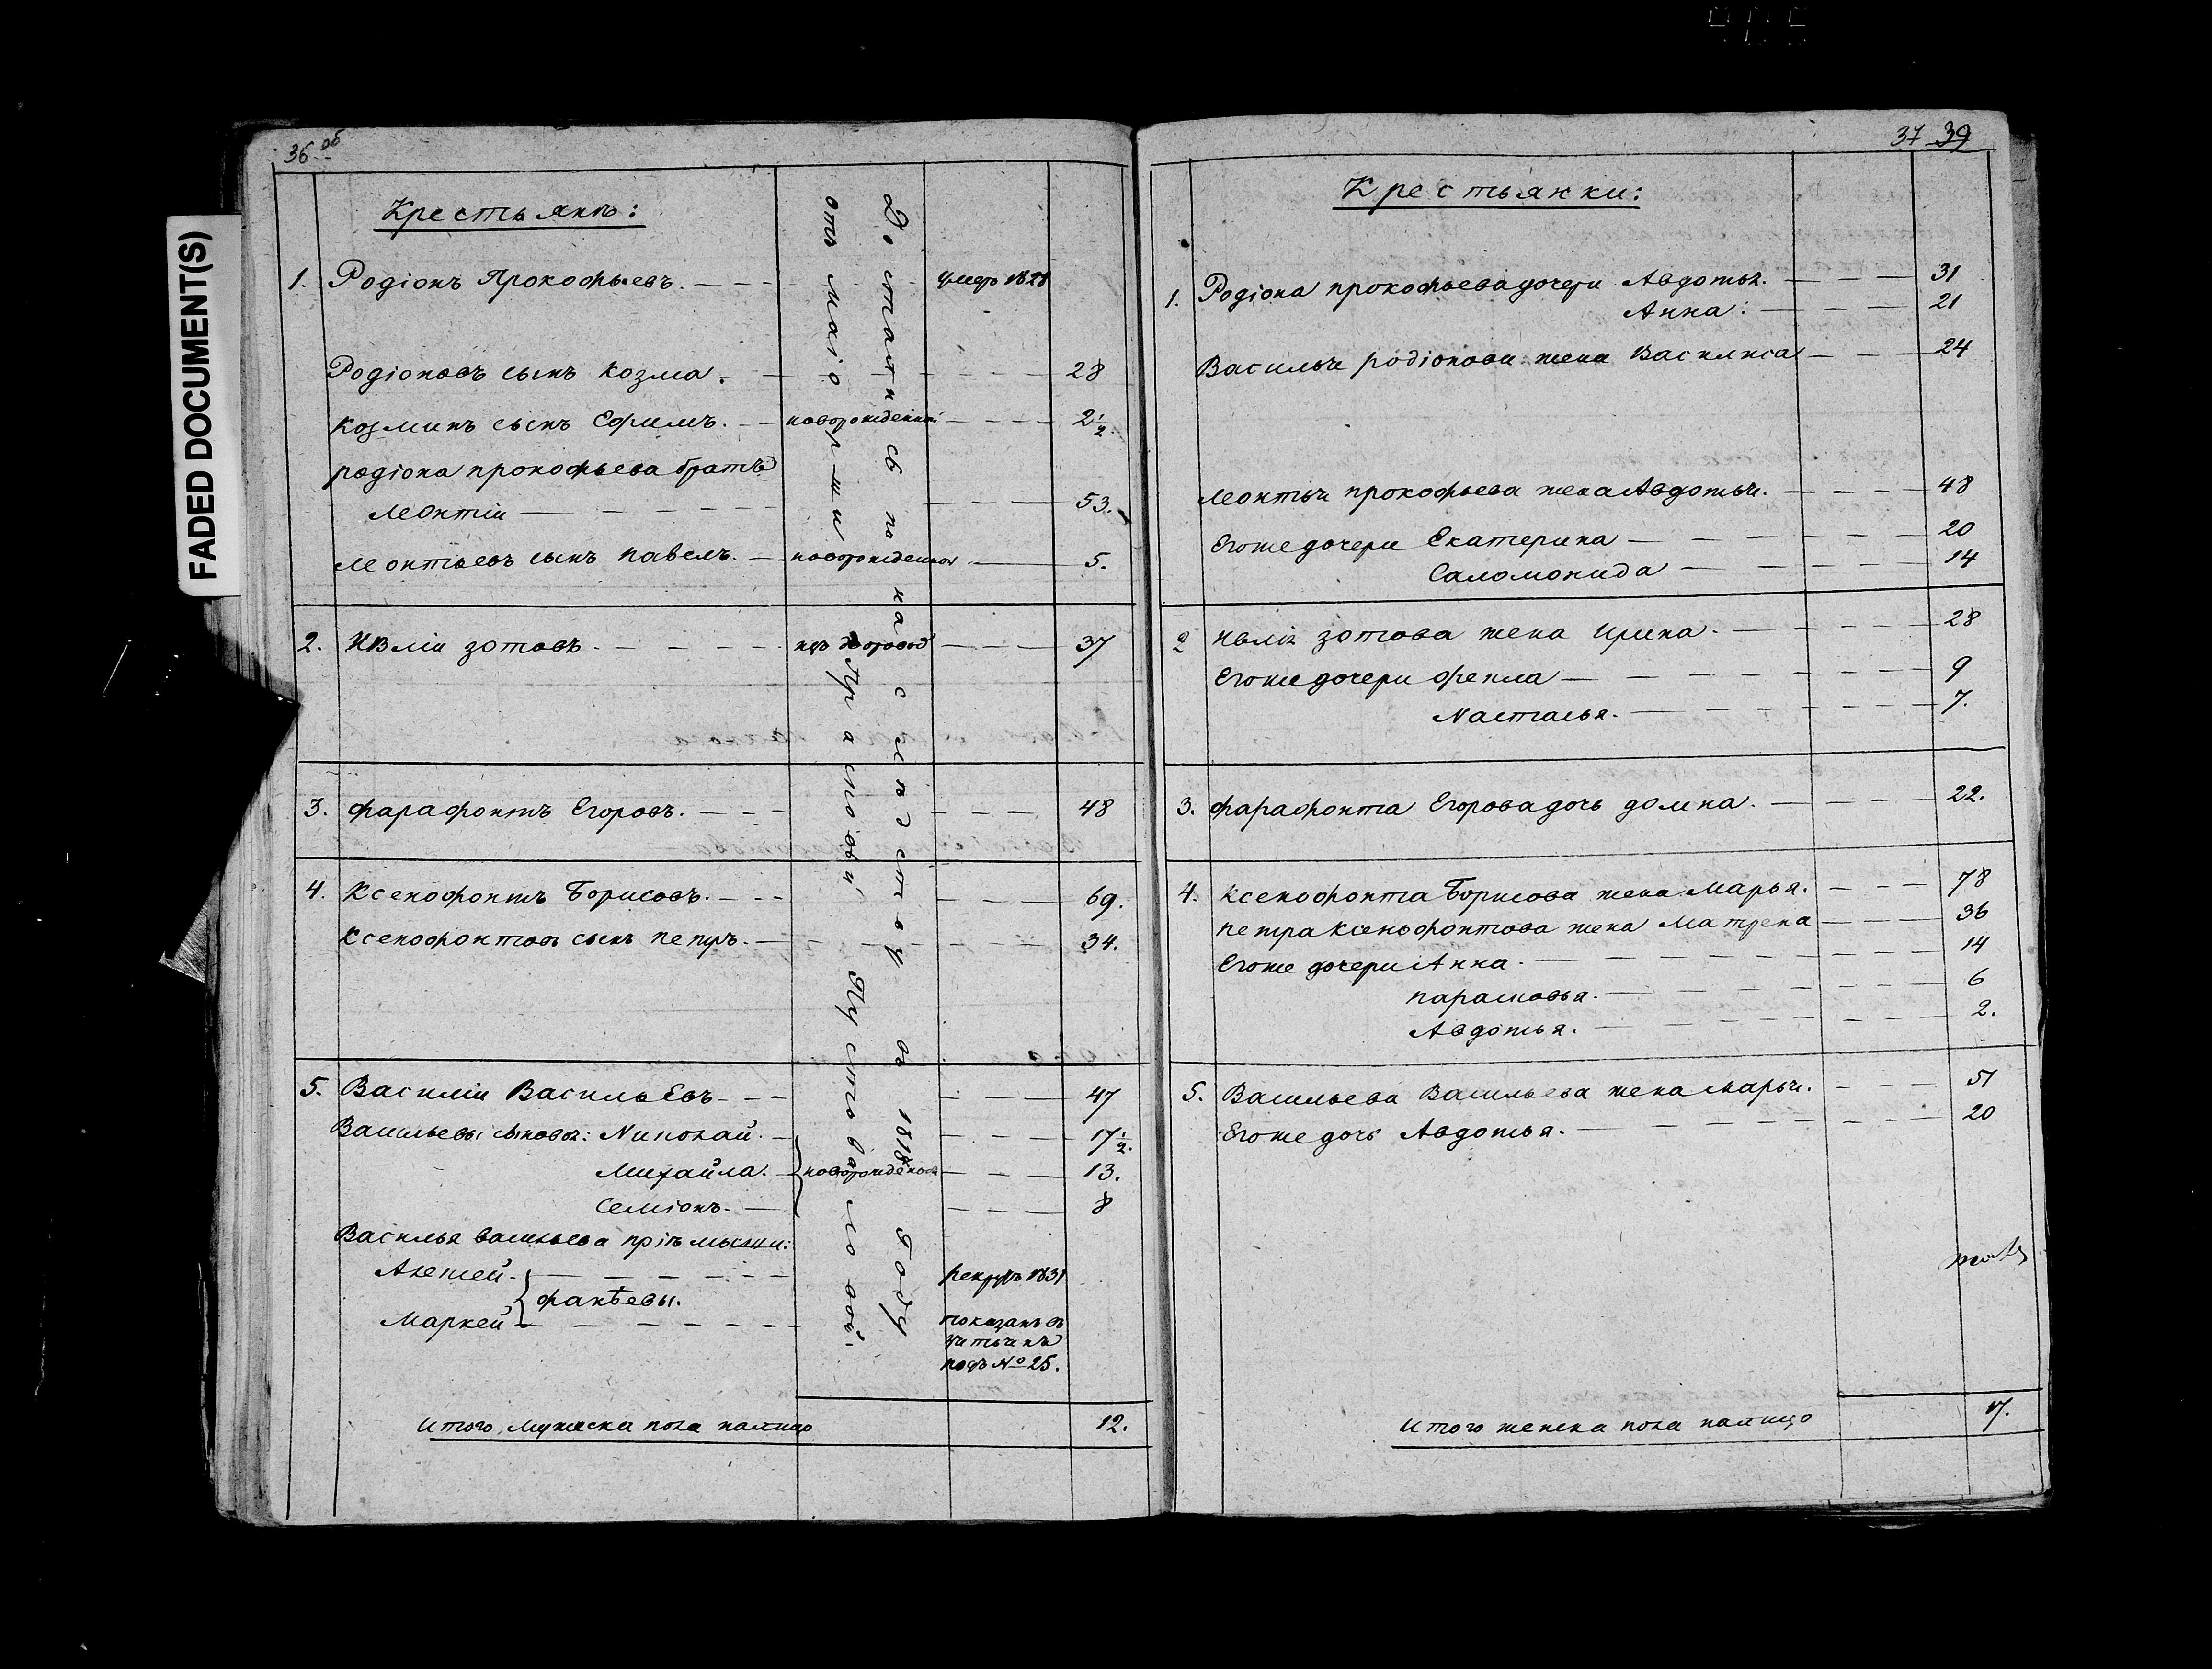 FADED DOCUMENT(S)
36 об
Крестьянъ:
1. Родіонъ Прокофьевъ. умеръ 1828
Родіоновъ сынъ Козма. 28
Козминъ сынъ Ефимъ. новорожденной 2 1/2
родіона прокофьева братъ
Леонтіи 53.
Леонтьевъ сынъ павелъ. новорожденной 5.
2. Ивліи зотовъ. 37
3. фарафонтъ Егоровъ. 48
4. Ксенофонтъ Борисовъ. 69.
Ксенофонтовъ сынъ петръ. 34.
5. Василіи Васильевъ 47
Васильевы сыновья: Николай. 17 1/2.
Михайла. новорожденныя 13.
Семіонъ. 8
Василья васильева пріемыши:
Алексей. рекрутъ 1831
факѣевы.
Маркей показанъ въ
подъ № 25.
Достались по наследству въ 1818 году
отъ маіорши Прасковьи Пустоваловой.
Итого мужеска пола налицо 12.
37 39
Крестьянки:
1. Родіона прокофьева дочери Авдотья. 31
Анна: 21
Василья родіонова жена Василиса 24
Леонтья прокофьева жена Авдотья. 48
Егоже дочери Екатерина 20
Саломонида 14
2 Ивлія зотова жена Ирина. 28
Егоже дочери фекла 9
Насталья. 7.
3. фарафонта Егорова дочь домна. 22.
4. Ксенофонта Борисова жена Марья. 78
петра Ксенофонтова жена Матрена 36
Егоже дочери Анна. 14
парасковья. 6
Авдотья. 2.
5. Васильева Васильева жена Марья. 51
Егоже дочь Авдотья. 20
Итого женска пола налицо 17.